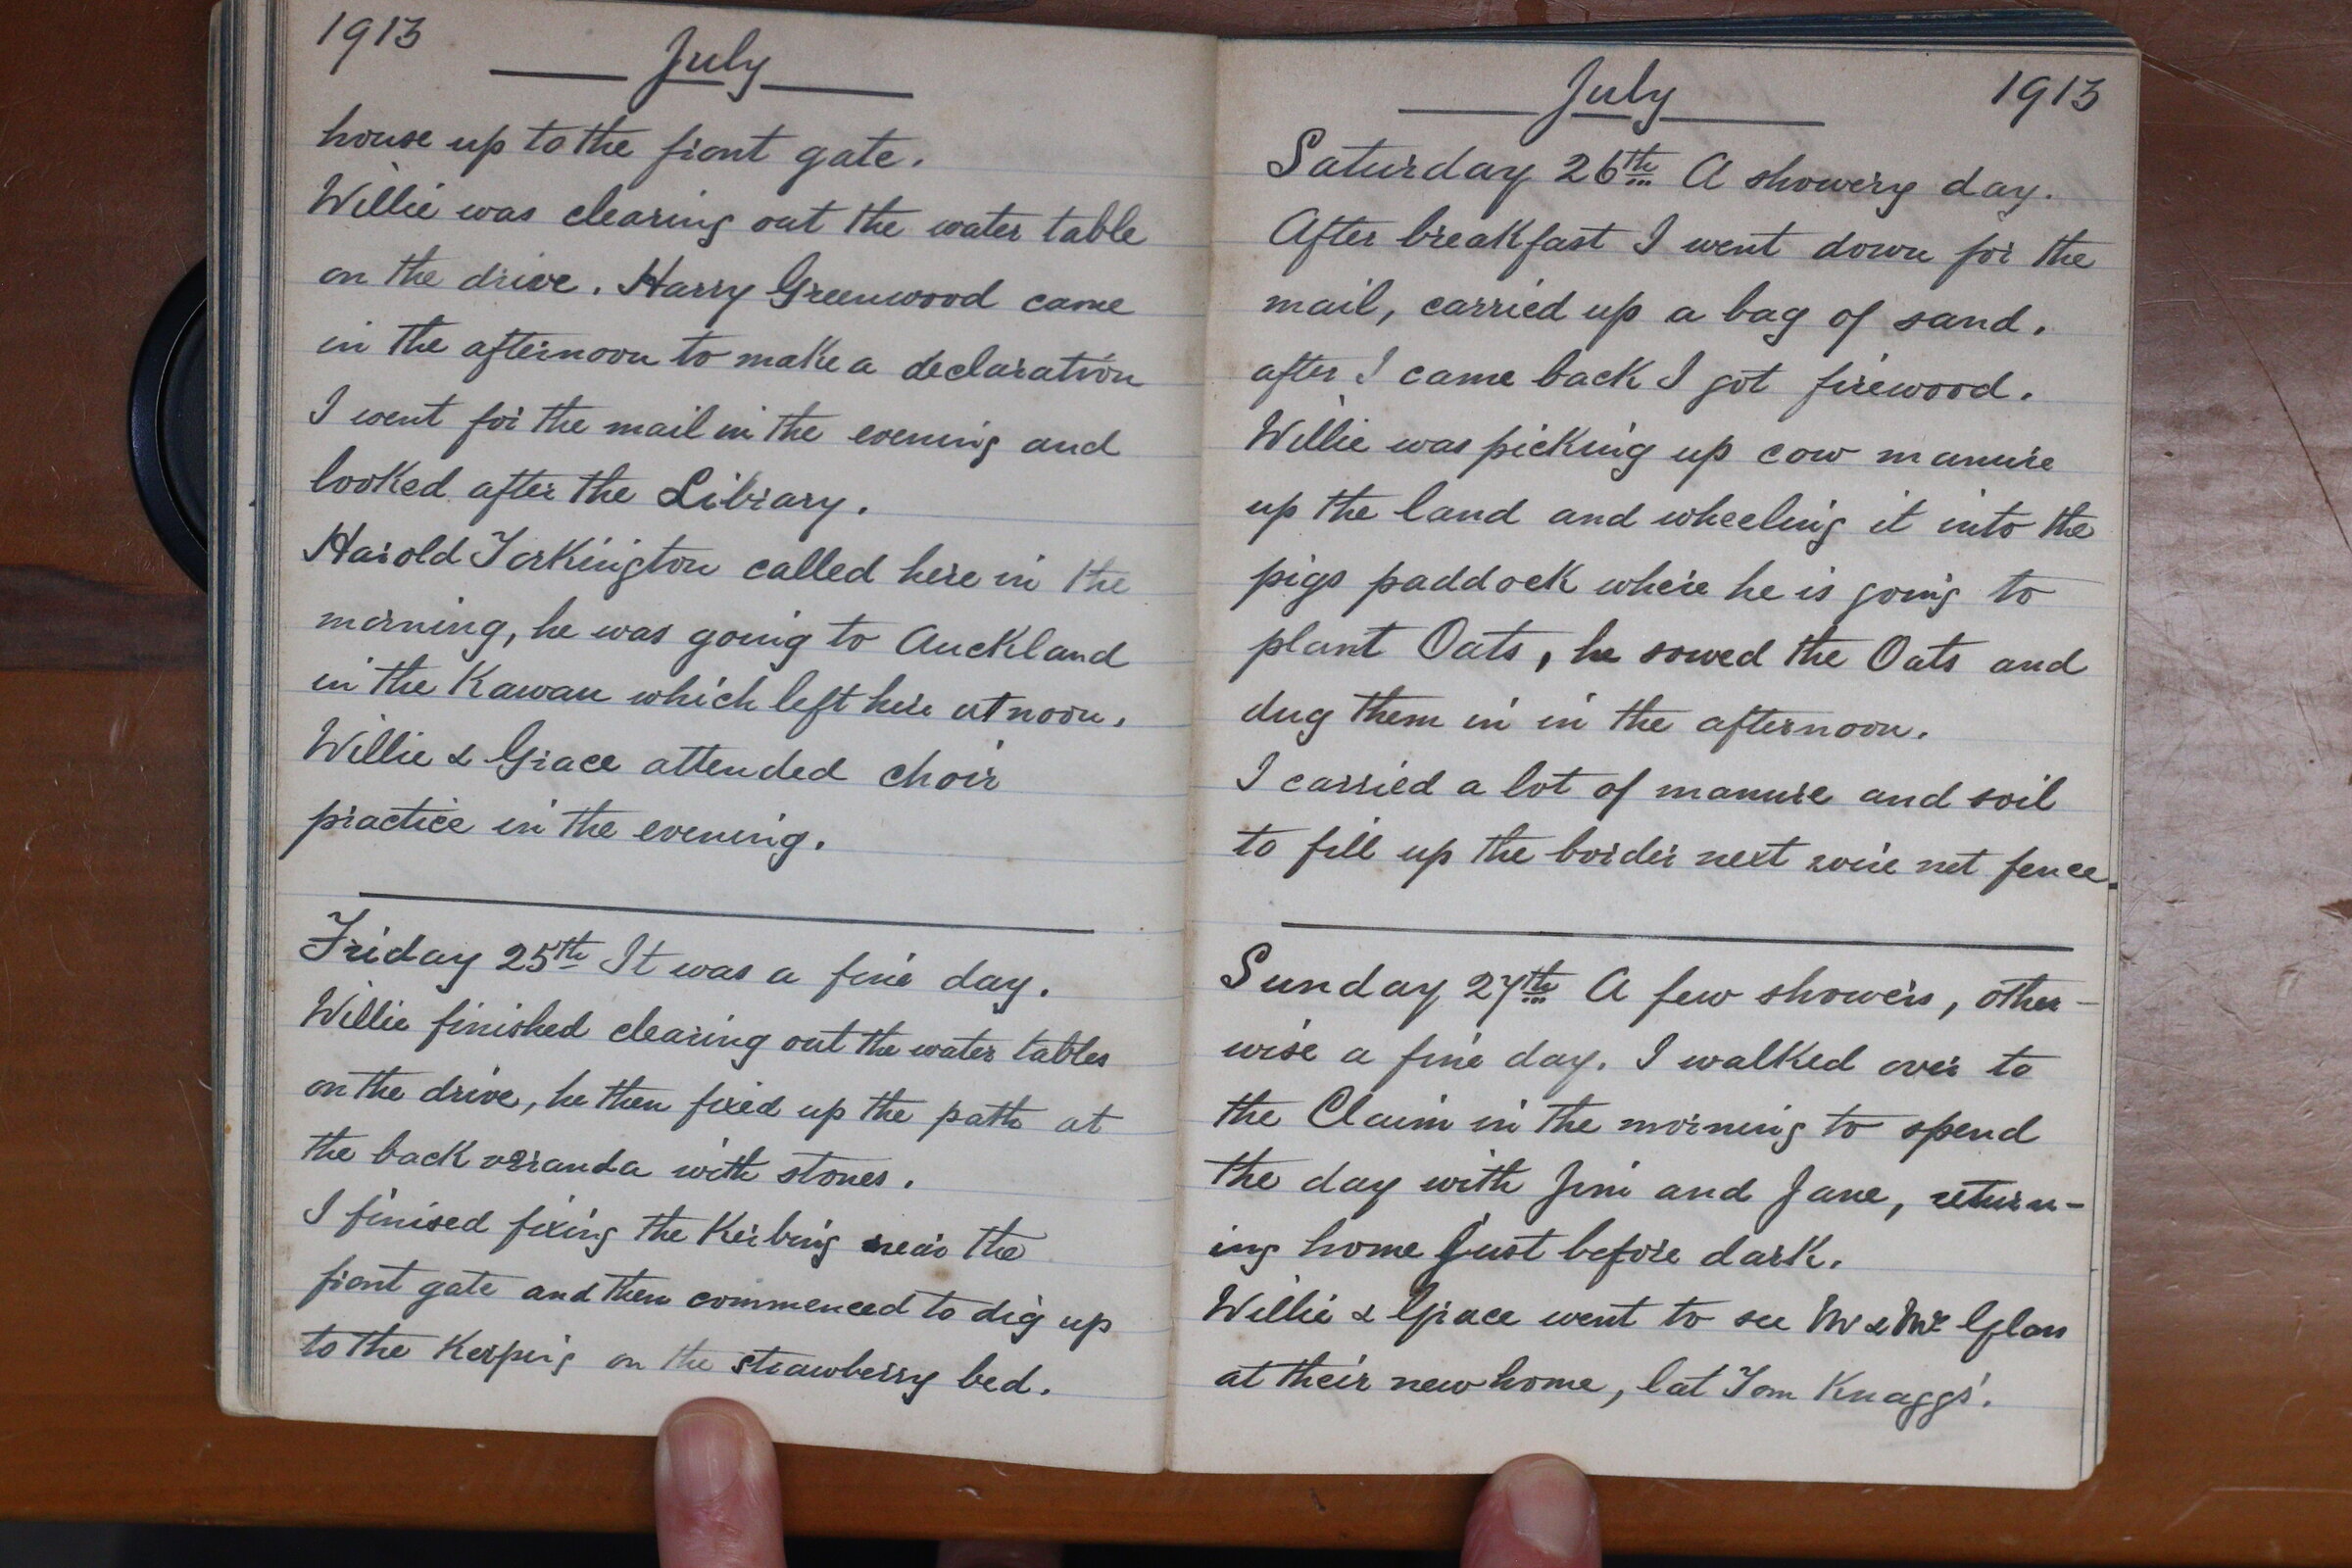 1913
July
house up to the front gate.
Willie was clearing out the water table
on the drive. Harry Greenwood came
in the afternoon to make a declaration
I went for the mail in the evening and
looked after the Library.
Harold Torkington called here in the
morning, he was going to Auckland
in the Kawau which left here at noon.
Willie & Grace attended choir
practice in the evening.
Friday 25th It was a fine day.
Willie finished clearing out the water tables
on the drive, he then fixed up the path at
the back veranda with stones.
I finised fixing the Kerbing near the
front gate and then commenced to dig up
to the on the strawberry bed.
July
1913
Saturday 26th A showery day.
After breakfast I went down for the
mail, carried up a bag of sand.
after I came back I got firewood.
Willie was picking up cow manure
up the land and wheeling it into the
pigs paddock where he is going to
plant Oats, he sowed the Oats and
dug them in in the afternoon.
I carried a lot of manure and soil
to fill up the border next wire net fence.
Sunday 27th A few showers, other-
wise a fine day. I walked over to
the Claim in the morning to spend
the day with Jim and Jane, return-
ing home just before dark.
Willie & Grace went to see Mr & Mrs
at their new home, lat Tom Knaggs'.